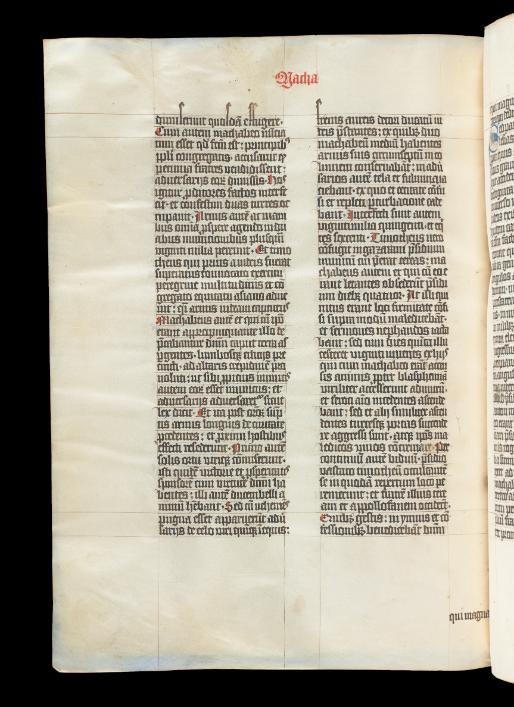 Macha
dimiserunt quosdā effugere.
Cum autem machabeo nūtia
tum esset qd fctm est: principib9
ppli congregatis accusauit q
pecunia fratres vendidissent:
aduersarijs eoꝝ dimissis. Hos
igitur ꝓditores factos interfe
cit et confestim duas turres oc
cupauit. Armis autē ac mani
bus omnia ꝓspere agendo in du
abus municionibus plusquā
viginti milia peremit. Et timo
theus qui prius a iudeis fuerat
superatus conuocato exercitu
peregrine multitudinis et con
gregato equitatu asiano adue
nit: qͣsi armis iudeam capturus
Machabeus autē et qui cū ipō
erant appropinquante illo de
precabantur dn̄m caput terra as
pergentes. lumbosqꝫ cilicijs pre
cincti. ad altaris crepidinē pro
uoluti: ut sibi propicius inimicis
autem eoꝝ esset inimicus: et
aduersarijs aduersaret sicut
lex dicit. Et ita post orōnē sūp
tis armis longius de ciuitate
procedentes: et proximi hostibus
effecti resederunt. Primo autē
solis ortu utriqꝫ cōmiserunt.
isti quidē victorie et prosperitatis
sponsorē cum virtute dn̄m ha
bentes: illi autē ducem belli a
nimū hēbant. Sed cū vehemēs
pugna esset apparuerūt adu
sarijs de celo viri quinqꝫ ī equis:
frenis aureis decori ducatū iu
deis p̄stantes: ex quibꝫ duo
machabeū mediū habentes
armis suis circumseptū in co
lumem conseruabāt: in adu
sarios autē tela et fulmina
iaciebant. ex quo et cecitate cōfu
si et repleti perturbacione cade
bant. Interfecti sunt autem.
viginti milia quingenti. et eq̄
tes sexcenti. Timotheus vero
cōfugit in gazaram p̄sidium
munitū cui p̄erat cereas: ma
chabeus autem et qui cū eo e
rant letantes obsederūt p̄sidi
um diebꝫ quatuor. At illi qui
intus erant loci firmitate cōfi
si supra modū maledicebāt.
et sermones nephandos iacta
bant: sed cum dies quīta illu
cesceret viginti iuuenes ex hijs
qui cum machabeo erāt accen
si animis ꝓpter blasphemiā
viriliter accesserunt ad murū.
et feroci aīo incedentes ascende
bant: sed et alij similiter ascen
dentes turres portas succende
re aggressi sunt. atqꝫ ipsos ma
ledicos viuos cōcremare. Per
continuū autē biduū p̄sidio
vastato timotheū occultantē
se in quodā repertum loco pe
remerunt: et fratrē illius cere
am et appollofanem occiderūt.
Quibꝫ gestis: in ymnis et cō
fessionibus benedicebāt dn̄m
qui magna